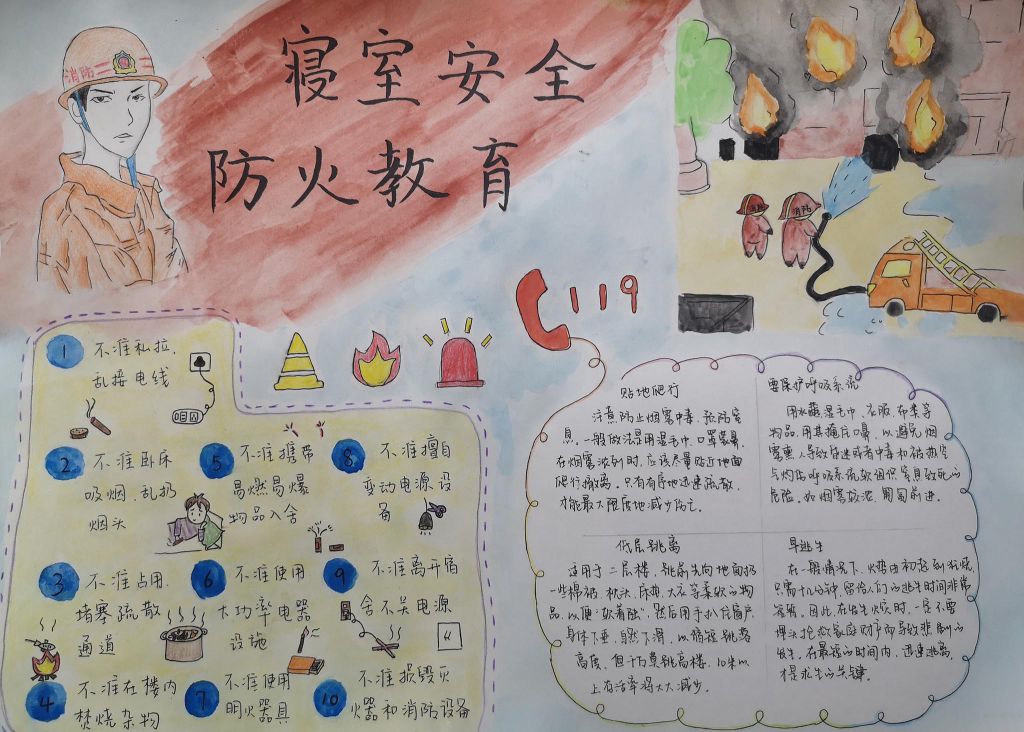 消防
寝室安全
防火教育
消防
119
1
不准私拉、
乱接电线
2
不准卧床
吸烟、乱扔
烟头
3
不准占用、
堵塞疏散
通道
4
不准在楼内
焚烧杂物
5
不准携带
易燃易爆
物品入舍
6
不准使用
大功率电器
设施
7
不准使用
明火器具
8
不准擅自
变动电源设
备
9
不准离开宿
舍不关电源
10
不准损毁灭
火器和消防设备
贴地爬行
注意防止烟雾中毒、预防窒
息,一般做法是用湿毛巾、口罩蒙鼻,
在烟雾浓烈时,应该尽量贴近地面
爬行撤离,只有有序地迅速疏散,
才能最大限度地减少伤亡。
要保护呼吸系统
用水蘸湿毛巾、衣服、布类等
物品,用其掩住口鼻,以避免烟
雾熏人导致昏迷或者中毒和被热空
气灼伤呼吸系统软组织窒息致死的
危险,如烟雾较浓,匍匐前进。
低层跳离
适用于二层楼,跳前先向地面扔
一些棉被、枕头、床垫、大衣等柔软的物
品,以便"软着陆",然后用手扒住窗户,
身体下垂,自然下滑,以缩短跳落
高度,但千万莫跳高楼,10米以
上存活率将大大减少。
早逃生
在一般情况下,火势由初起到狂烧
只需十几分钟,留给人们的逃生时间非常
短暂,因此,在发生火灾时,一定不要
埋头抢救家庭财产而导致悲剧的
发生,在最短的时间内,迅速逃离,
才是求生的关键。